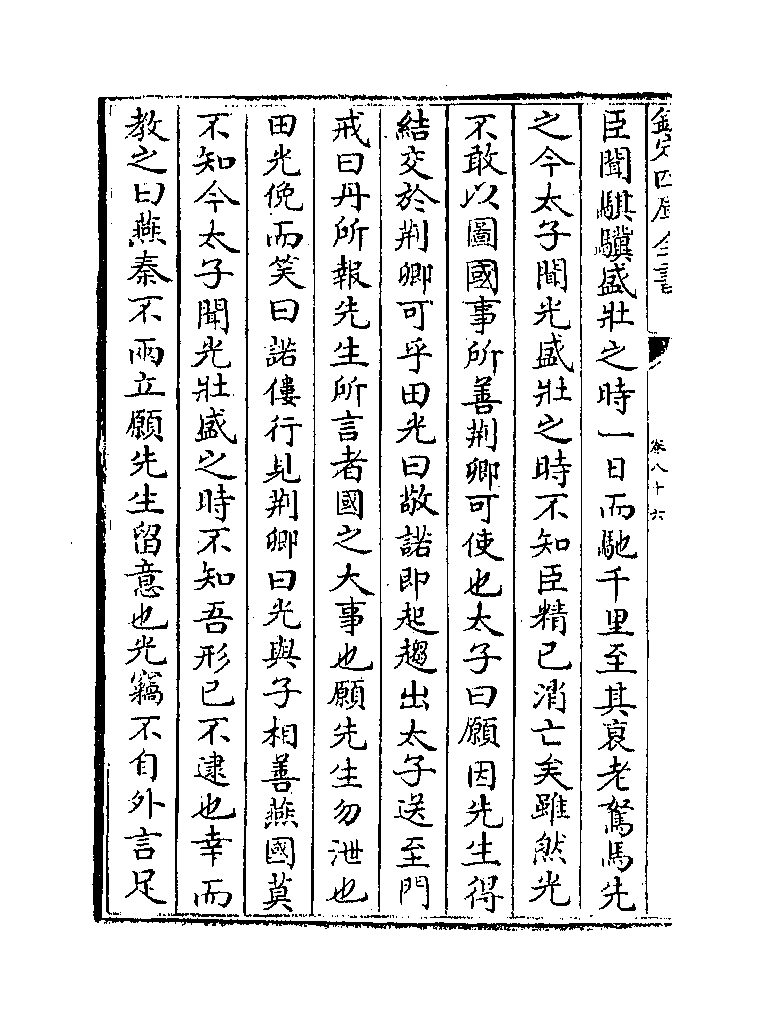 欽定四庫全書
卷八十六
臣聞騏驥盛壯之時一日而馳千里至其衰老駑馬先
之今太子聞光盛壯之時不知臣精已消亡矣雖然光
不敢以圖國事所善荆卿可使也太子曰願因先生得
結交於荆卿可乎田光曰敬諾即起趨出太子送至門
戒曰丹所報先生所言者國之大事也願先生勿泄也
田光俛而笑曰諾僂行見荆卿曰光與子相善燕國莫
不知今太子聞光壯盛之時不知吾形已不逮也幸而
教之曰燕秦不兩立願先生留意也光竊不自外言足